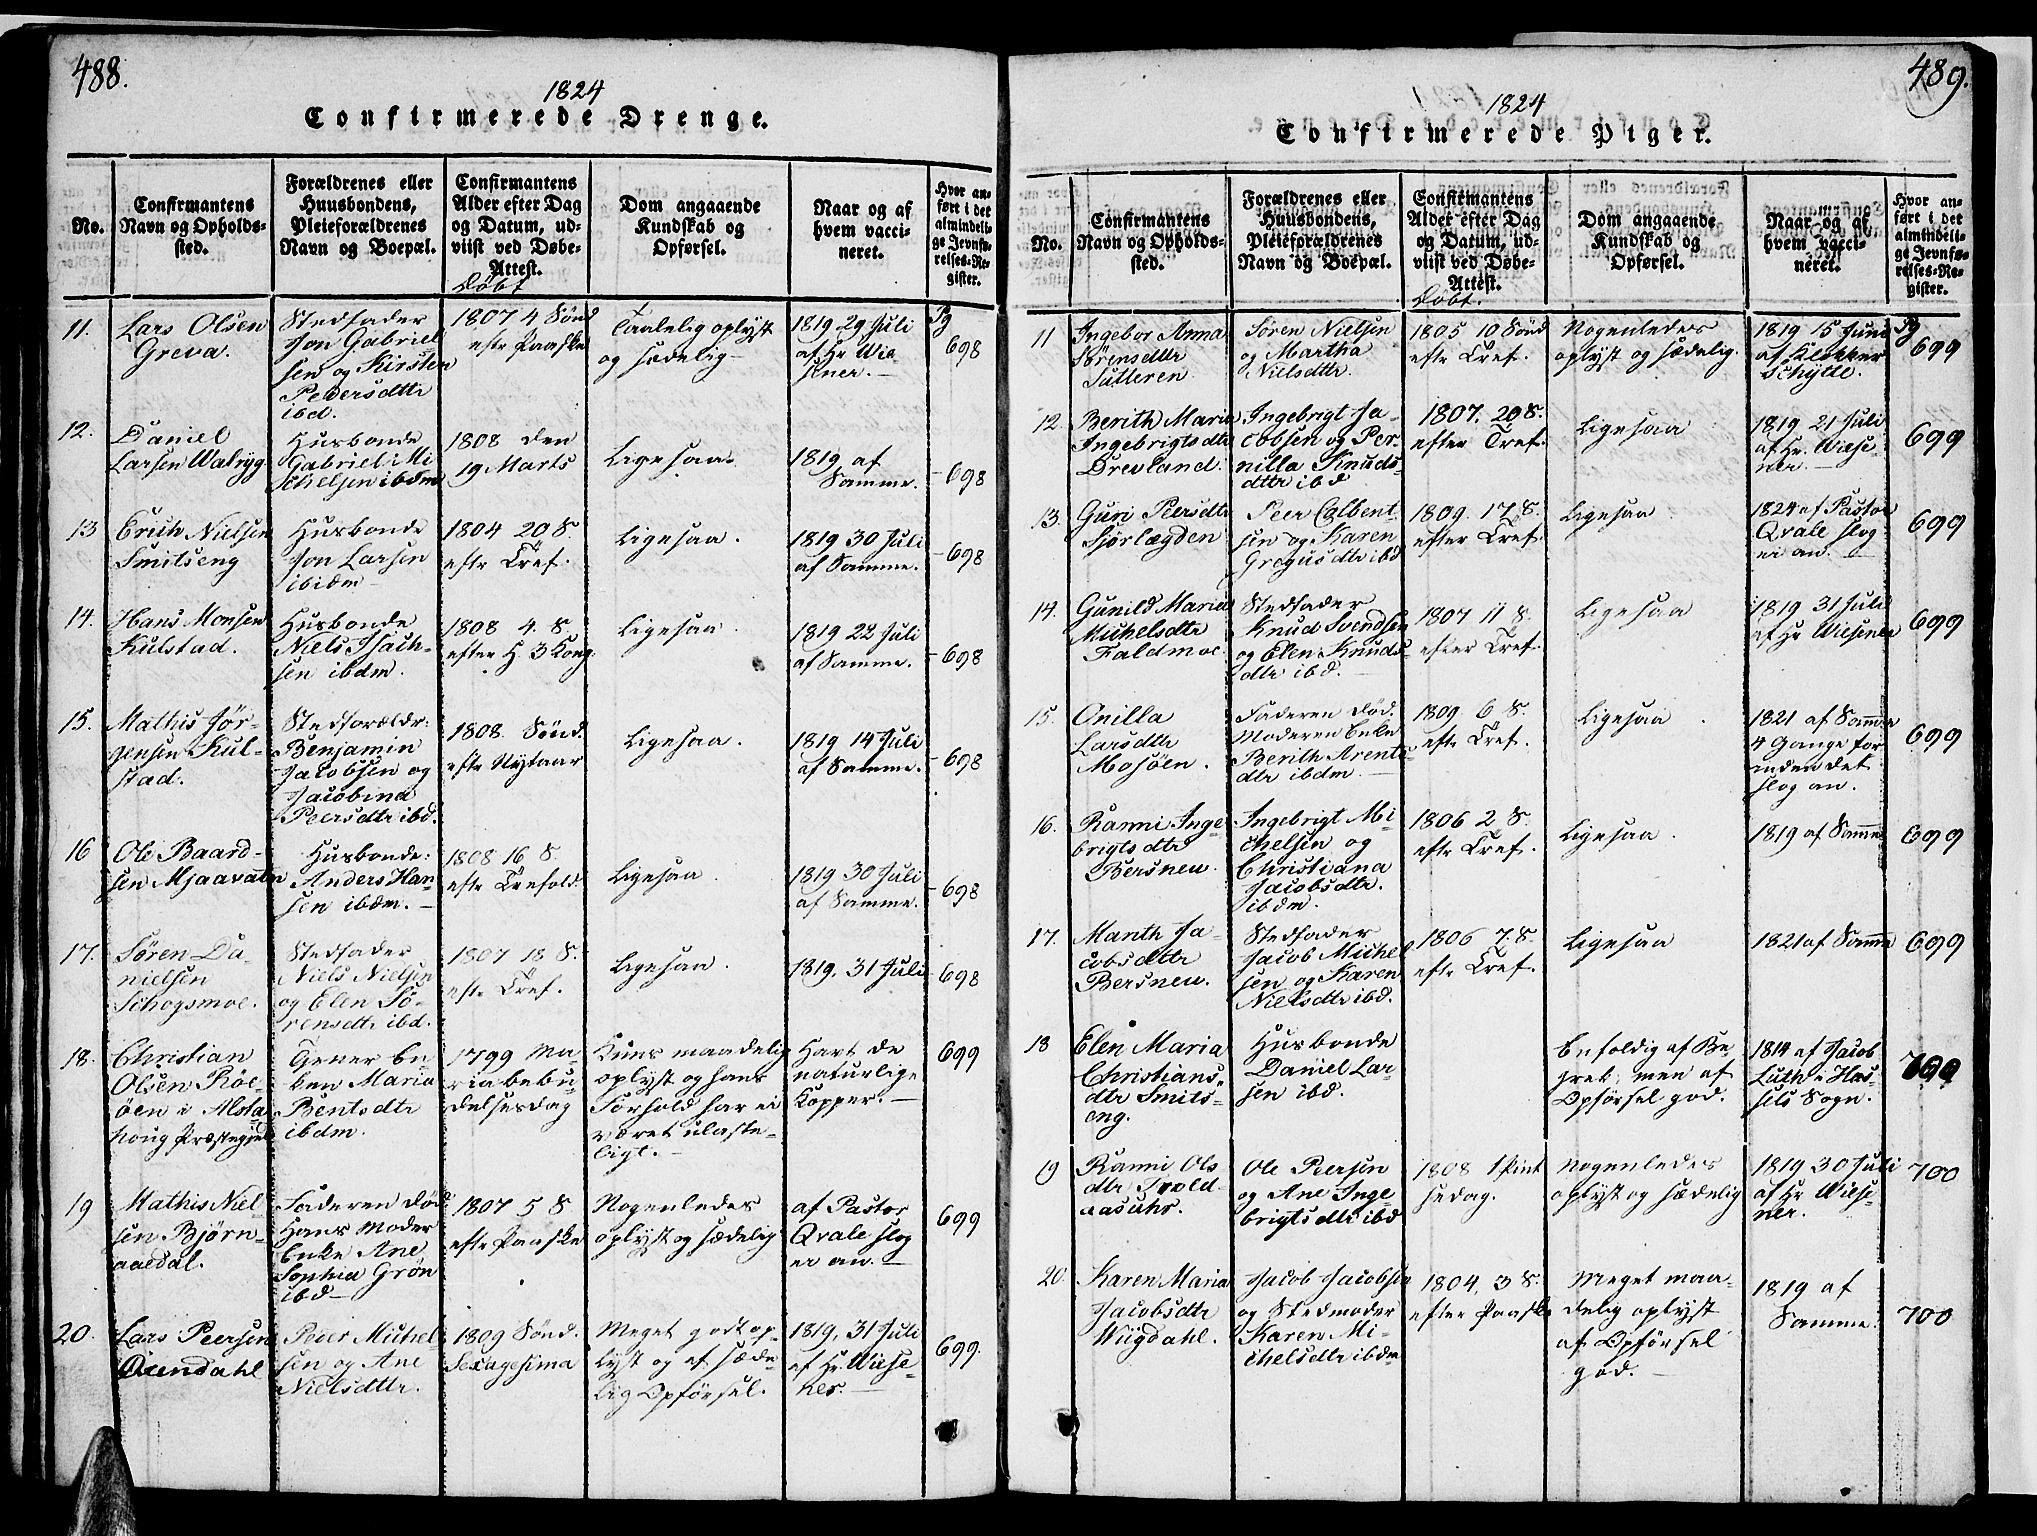 488.
1824
Confirmerede Drenge.
No.
Confirmantens
Navn og Opholds-
sted.
Forældrenes eller
Huusbondens,
Pleieforældrenes
Navn og Boepæl.
Confirmantens
Alder efter Dag
og Datum, ud-
viist ved Døbe-
Attest.
Döbt
Dom angaaende
Kundskab og
Opførsel.
Naar og af
hvem vacci-
neret.
Hvor an-
ført i det
almindeli-
ge Jevnfø-
relses-Re-
gister.
11.
Lars Olsen
Greva.
Stedfader
Jon Gabriel
sen og Kirsten
Pedersdtr
ibd.
1807 4 Sönd
eftr Paaske
Taalelig oplyst
og sædelig
1819 29 Juli
af Hr Wie
sener.
Pg
698
12.
Daniel
Larsen Walryg
Husbonde
Gabriel Mi
chelsen ibdm
1808 den
19 Marts
Ligesaa
1819 af
Samme.
698
13
Erich Nielsen
Smitseng
Husbonde
Jon Larsen
ibidm
1804 20 S.
eftr Tref.
Ligesaa.
1819 30 Juli
af Samme.
698
14.
Hans Monsen
Kulstad.
Husbonde
Niels Isach-
sen ibdm.
1808 4. S
efter H. 3 Kong
Ligesaa.
1819 22 Juli
af Samme.
698
15.
Mathis Jör-
gensen Kul-
stad.
Stedforældr:
Benjamin
Jacobsen og
Jacobina
Peersdtr ibd.
1808. Sönd.
eftr Nytaar
Ligesaa.
1819 14 Juli
af Samme.
698
16
Ole Baard-
sen Mjaavatn
Husbonde:
Anders Han-
sen ibdm.
1808 16 S.
eftr Trefold.
Ligesaa.
1819 30 Juli
af Samme.
698
17.
Sören Da-
nielsen
Schogsmoe.
Stedfader
Niels Nielsen
og Elen Sö-
rensdtr ibd.
1807 18 S.
eftr Tref.
Ligesaa.
1819, 31 Juli
698
18.
Christian
Olsen Röe-
öen i Alsta
houg Præstegjeld
Tjener En
ken Maria
Bentsdtr
ibdm.
1799 Ma-
riabebu-
delsesdag
Kuns maadelig
oplyst og hans
Forhold har ei
været ulaste-
ligt.
Havt de
naturlige
Kopper.
699
19
Mathis Niel-
sen Björn-
aaedal.
Faderen död
Hans Moder
Enke Ane
Sophia Grön
ibd
1807 5 S
eftr Paaske
Nogenledes
oplyst og sædelig
af Pastor
Qvale slog
ei an.
699
20.
Lars Peersen
Peder Michel-
sen og Ane
Nielsdtr.
1809 Sönd.
Sexagesima
Meget godt op-
lyst og af sæde-
lig Opförsel.
1819, 31 Juli
af Hr. Wiese-
ner.
699.
489.
1824
Confirmerede Piger.
No.
Confirmantens
Navn og Opholds-
sted.
Forældrenes eller
Huusbondens,
Pleieforældrenes
Navn og Boepæl.
Confirmantens
Alder efter Dag
og Datum, ud-
viist ved Døbe-
Attest.
Döbt.
Dom angaaende
Kundskab og
Opførsel.
Naar og af
hvem vacci-
neret.
Hvor an-
ført i det
almindeli-
ge Jevnfø-
relses-Re-
gister.
11
Ingebor Anna
Sörensdtr
Sören Nielsen
og Martha
Nielsdtr.
1805 10 Sönd
eftr Tref.
Nogenledes
oplyst og sædelig.
1819 15 Juni
af Klokker
Schytte.
Pg
699
12.
Berith Maria
Ingebrigtsdtr
Drevland.
Ingebrigt Ja-
cobsen og Per-
nilla Knuds-
dttr ibd
1807. 20 S.
efter Tref.
Ligesaa
1819 21 Juli
af Hr. Wiese-
ner.
699
13.
Guri Peersdtr
Sjørlægden
Peer Calbent-
sen og Karen
Gregusdtr ibd
1809. 17 S.
efter Tref.
Ligesaa.
1824 af Pastor
Qvale slog
ei an.
699
14.
Gunild Maria
Michelsdtr
Faldmoe.
Stedfader
Knud Svendsen
og Elen Knuds-
dtr ibd.
1807 11 S.
efter Tref.
Ligesaa
1819 31 Juli
af Hr Wiesener
699
15.
Onilla
Larsdtr
Mosöen.
Faderen död.
Moderen Enke
Berith Arents-
dtr ibdm.
1809. 6 S.
eftr Tref.
Ligesaa.
1821 af Samme
4 Gange for
inden det
slog an.
699
16.
Ranni Inge
brigtsdtr
Bersneu.
Ingebrigt Mi-
chelsen og
Christiana
Jacobsdtr.
ibdm.
1806 2 S.
eftr Tref.
Ligesaa.
1819 af Samme
699
17.
Marith Ja-
cobsdtr
Bersneu.
Stedfader
Jacob Michel
sen og Karen
Nielsdtr ibd.
1806 7. S.
eftr Tref.
Ligesaa
1821 af Samme
699
18
Elen Maria
Christians-
dtr Smits-
eng.
Husbonde
Daniel Lar-
sen ibd.
Enfoldig af Be-
greb, men af
Opförsel god.
1814 af Jacob
Lüth i Has-
sels Sogn.
700
19
Ranni Ols
dtr
Ole Peersen
og Ane Inge-
brigtsdtr ibd
1808 1 Pint
sedag.
Nogenledes
oplyst og sædelig
1819 30 Juli
af Hr Wiese-
ner.
700
20.
Karen Maria
Jacobsdtr
Wiigdahl.
Jacob Jacobsen
og Stedmoder
Karen Mi-
chelsdtr ibdm
1804, 3 S.
efter Paaske
Meget maa-
delig oplyst
af Opförsel
god.
1819 af
Samme.
700